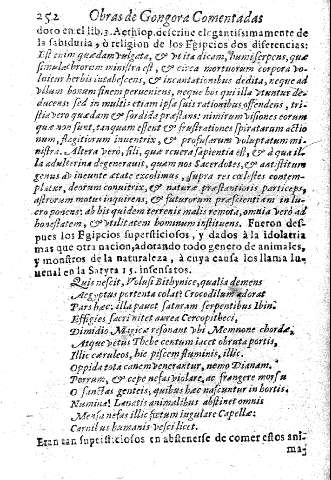 252 Obras de Gongora Comentadas
doro en el lib. 3. Aethiop. descriue elegantissimamente de
la sabiduria, ò religion de los Egipcios dos diferencias:
Est enim quædam vulgata, & vt ita dicam, humi serpens, quæ
simulachrorum ministra est, & circa mortuorum corpora vo
luitur herbis intabescens, & incantationibus dedita, neque ad
vllum bonum finem perueniens, neque hos qui illa vtuntur de
ducens: sed in multis etiam ipsa suis rationibus offendens, tri-
stia vero quædam & sordida præstans: nimirum visiones eorum
quæ non sunt, tanquam essent & frustrationes speratarum actio
num, flagitiorum inuentrix, & profusarum voluptatum mi-
nistra. Altera verò, fili, quæ reuera sapientia est, & à qua il-
la adulterina degenerauit, quam nos Sacerdotes, & antistitum
genus ab ineunte ætate excolimus, supra res cælestes contem-
platur, deorum conuictrix, & naturæ præstantioris particeps,
astrorum motus inquirens, & futurorum præscientiam in lu-
cro ponens: ab his quidem terrenis malis remota, omnia verò ad
honestatem, & vtilitatem hominum instituens. Fueron des-
pues los Egipcios supersticiosos, y dados à la idolatria
mas que otra nacion, adorando todo genero de animales,
y monstros de la naturaleza, à cuya causa los llama Iu-
uenal en la Satyra 15. insensatos.
Quis nescit, Volusi Bithynice, qualia demens
Aegyptus portenta colat? Crocodilum adorat
Pars hæc: illa pauet saturam serpentibus Ibin.
Effigies sacri nitet aurea Cercopitheci,
Dimidio Magicæ resonant vbi Memnone chordæ,
Atque vetus Thebe centum iacet obruta portis,
Illic cæruleos, hic piscem fluminis, illic
Oppida tota canem venerantur, nemo Dianam.
Porrum, & cepe nefas violare, ac frangere morsu
O sanctas genteis, quibus hæc nascuntur in hortis,
Numina! Lanatis animalibus abstinet omnis
Mensa nefas illic fœtum iugulare Capellæ:
Carnibus humanis vesci licet.
Eran tan supersticiosos en abstenerse de comer estos ani-
ma-